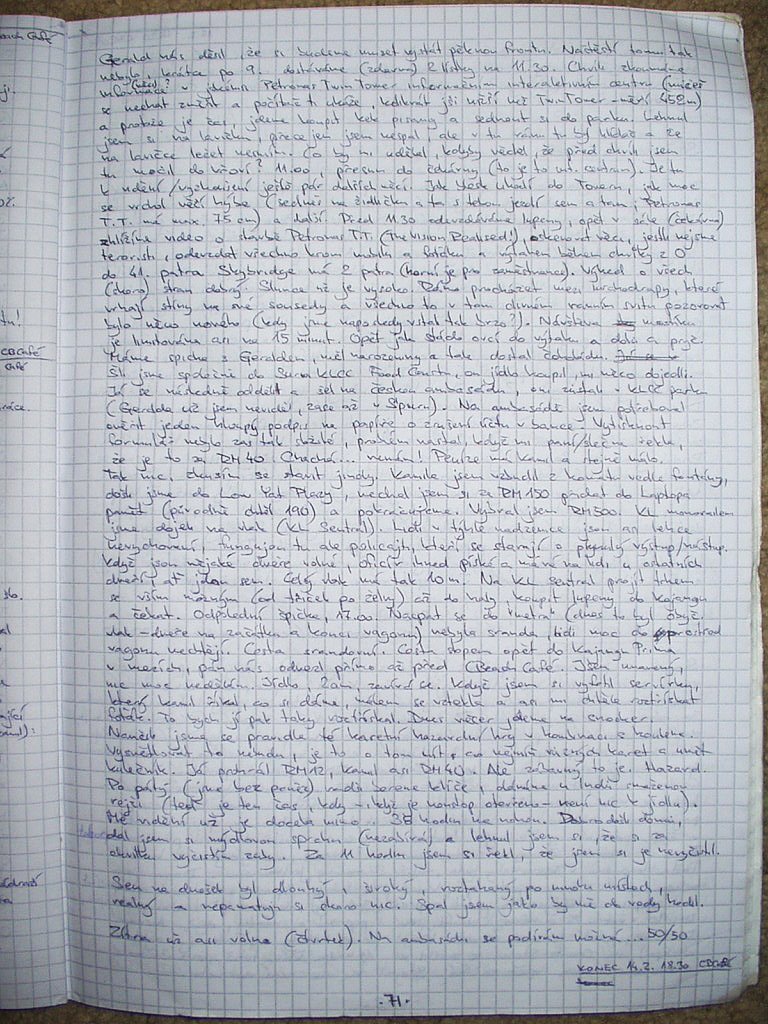 Gerald nás děsil, že si budeme muset vystát pěknou frontu. Naštěstí tomu tak
nebylo, krátce po 9. dostáváme (zdarma) 2 lístky na 11.30. Chvíli zkoumáme
v Petronas Twin Tower informačním interaktivním centru (můžeš
se nechat změřit a počítač ti ukáže, kolikrát jsi nižší než Twin Tower - měří 452m)
a protože je čas, jdeme koupit kafe a sednout si do parku. Lehnul
jsem si na lavičku, přece jen jsem nespal, ale v tu ránu tu byl hlídač a že
na lavičce ležet nesmím. Co by mi udělal, kdyby věděl, že před chvílí jsem
tu močil do křoví? 11.00, přesun do čekárny (to je to inf. centrum). Je tu
k vidění/vyzkoušení ještě pár dalších věcí. Jak blesk uhodí do Toweru, jak moc
se vrchol věží hýbe (sedneš na židličku a ta s tebou jezdí sem a tam; Petronas
T.T. má max. 75 cm) a další. Před 11.30 odevzdáváme lupeny, opět v sále (čekárna)
zhlížíme video o stavbě Petronas T.T. (The Vision Realised!), oskenovat věci, jestli nejsme
teroristi, odevzdat všechno krom mobilu a foťáku a výtahem během chvilky z 0
do 41. patra. Skybridge má 2 patra (horní je pro zaměstnance). Výhled do všech
(skoro) stran dobrý. Slunce už je vysoko. Ráno procházet mezi mrakodrapy, které
vrhají stíny na své sousedy a všechno to v tom divném ranním svitu pozorovat
bylo něco nového (kdy jsme naposledy vstali tak brzo?). Návštěva
je limitována asi na 15 minut. Opět jako stádo ovcí do výtahu a dolů a pryč.
Máme spicha s Geraldem, měl narozeniny a tak dostal čokoládu.
Šli jsme společně do Suria KLCC Food Courtu, on jídlo koupil, my něco dojedli.
Já se následně oddělil a šel na českou ambasádu, oni zůstali v KLCC parku
(Geralda už jsem neviděl, zase až v Spuru). Na ambasádě jsem potřeboval
ověřit jeden hloupý podpis na papíře o zrušení účtu v bance. Vytisknout
formulář nebylo zas tak složité, problém nastal, když mi paní/slečna řekla,
že je to za RM 40. Chachá... nemám! Peníze má Kamil a stejně málo.
Tak nic, zkusím se stavit jindy. Kamila jsem vzbudil z komatu vedle fontány,
došli jsme do Low Yat Plazy, nechal jsem si za RM 150 přidat do laptopu
paměť (původně chtěl 190) a pokračujeme. Vybral jsem RM 500. KL monorailem
jsme dojeli na vlak (KL Sentral). Lidi v týhle nadzemce jsou asi lehce
nevychovaní - fungujou tu ale policajti, kteří se starají o plynulý výstup/nástup.
Když jsou nějaké dveře volné, oficír ihned píská a mává na lidi u ostatních
dveří, ať jdou sem. Celý vlak má tak 10m! Na KL Sentral projít trhem
se vším možným (od triček po želvy) až do haly, koupit lupeny do Kajangu
a čekat. Odpolední špička, 17.00. Nacpat se do "metra" (dnes to byl obyč.
vlak - dveře na začátku a konci vagonu) nebyla sranda, lidi moc do prostřed
vagonu nechtějí. Cesta srandovní. Cesta stopem opět do Kajangu Prima
v mezích, pán nás odvezl přímo až před CBeach Café. Jsem unavený,
nic moc nedělám. Jídlo, 2am, zavírá se. Když jsem si vyfotil servírky,
který Kamil říkal, co si dáme, málem se vztekla a asi mi chtěla roztřískat
foťák. To bych jí pak taky roztřískal. Dnes večer jdeme na snooker.
Naučili jsme se pravidla té karetní hazardní hry v kombinaci s koulema.
Vysvětlovat to nebudu, je to o tom mít co nejmíň různých karet a umět
kulečník. Já prohrál RM12, Kamil asi RM40. Ale zábavný to je. Hazard.
Po pátý (jsme bez peněz) radši bereme klíče, dáváme u Indů smaženou
rejži (teď je ten čas, kdy - když je nonstop otevřeno - není nic k jídlu).
Mé vidění už je docela mimo... 38 hodin na nohou. Dobrodili domů,
dal jsem si mýdlovou sprchu (nezabírá) a lehnul jsem si, že si za
chvilku vyčistím zuby. Za 11 hodin jsem si řekl, že jsem si je nevyčistil.
Sen na dnešek byl dlouhý, široký, roztahaný po mnoha místech,
reálný a nepamatuju si skoro nic. Spal jsem jako by mě do vody hodil.
Zítra už asi volno (čtvrtek). Na ambasádu se podívám možná... 50/50
KONEC 14.2. 18.30 CBCAFÉ
·71·